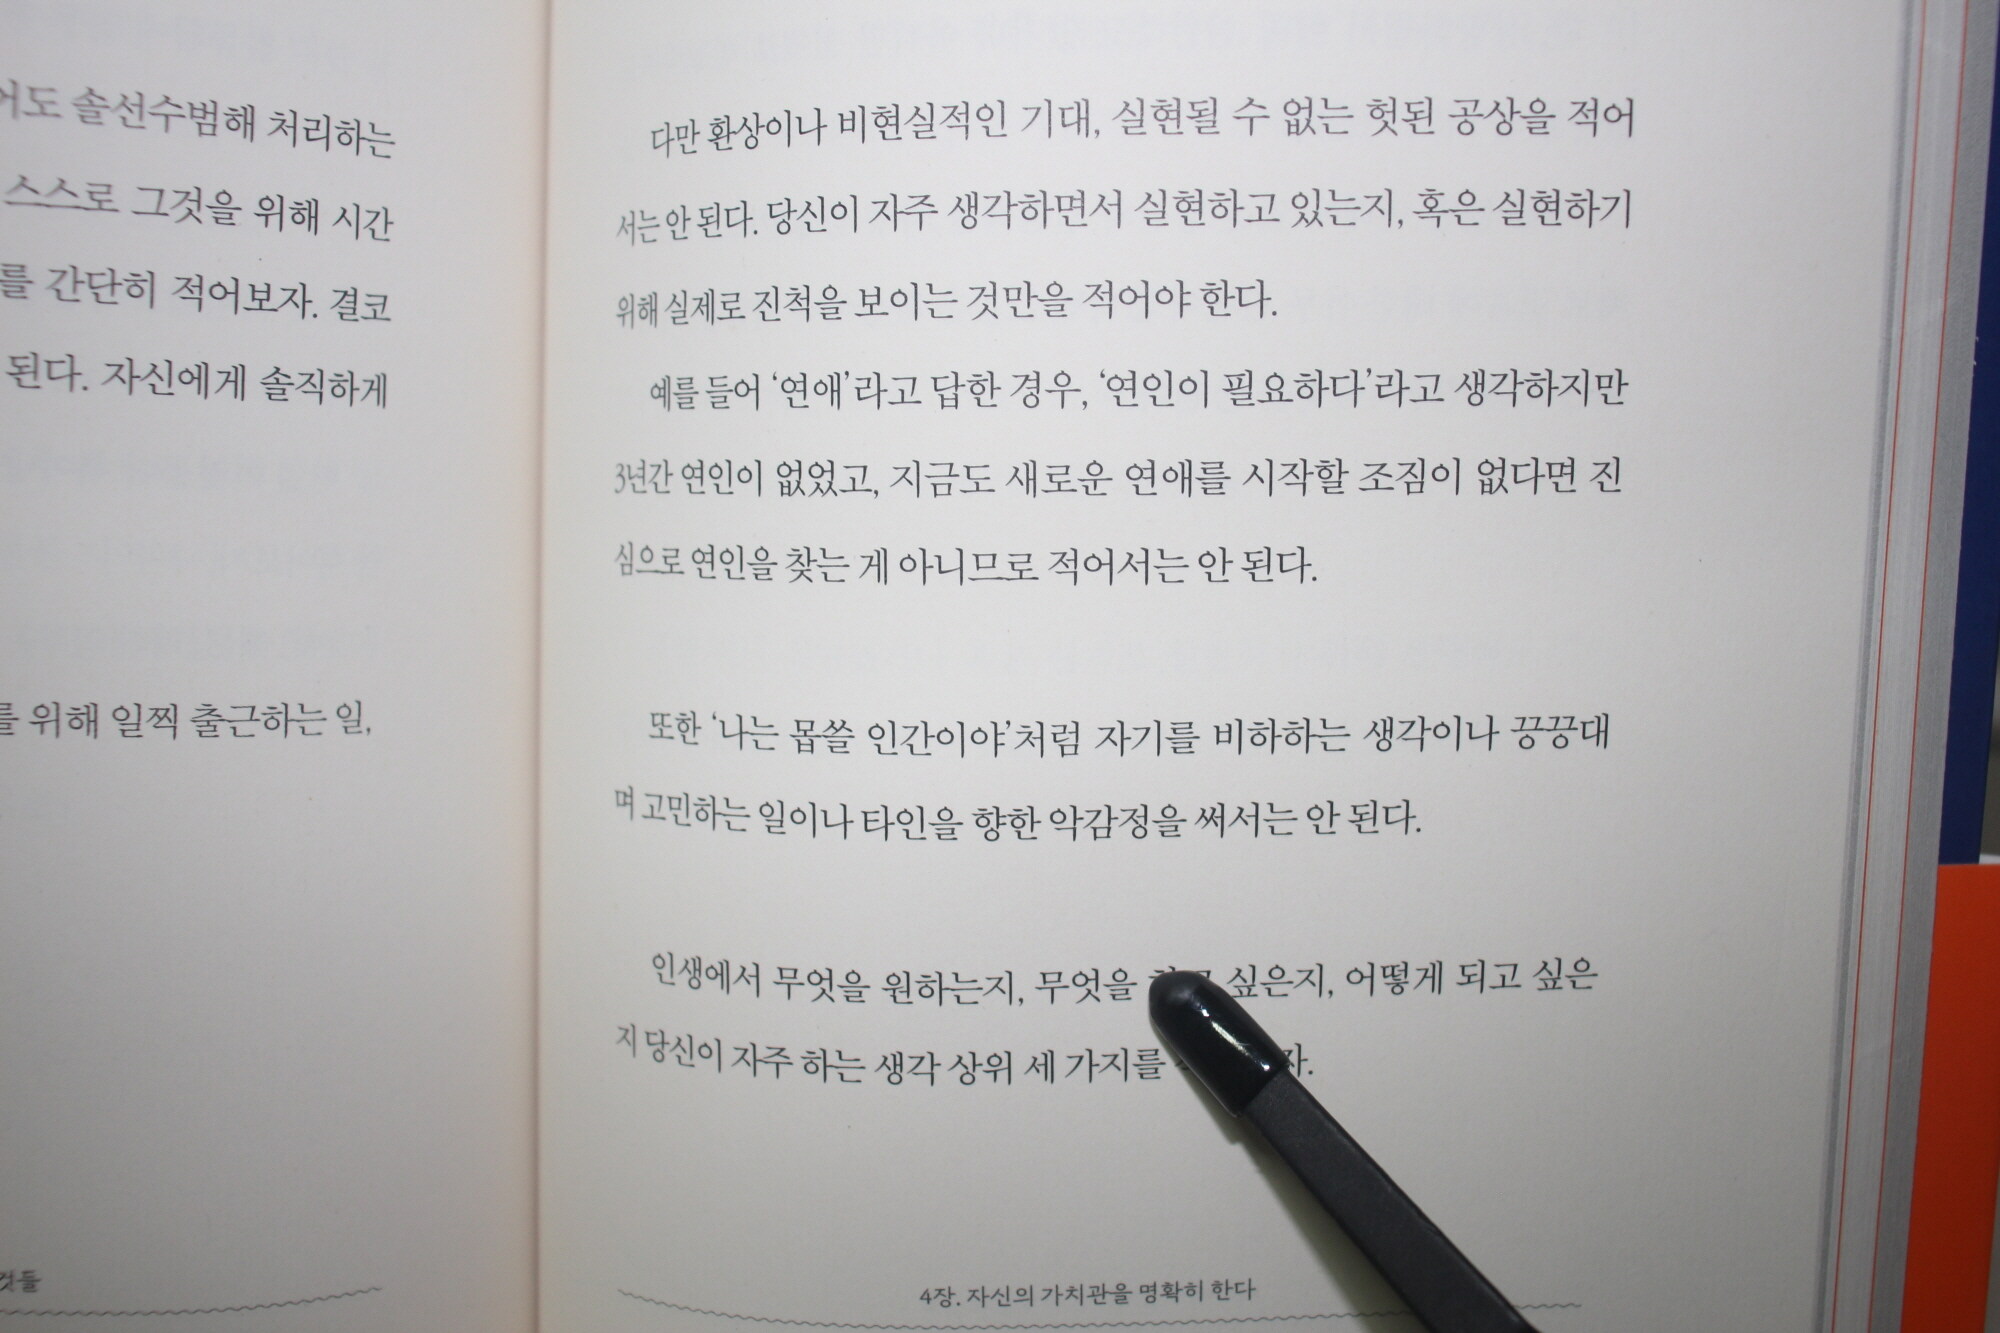 어도 솔선수범해 처리하는
스스로 그것을 위해 시간
를 간단히 적어보자. 결코
된다. 자신에게 솔직하게
를 위해 일찍 출근하는 일,
것들
다만 환상이나 비현실적인 기대, 실현될 수 없는 헛된 공상을 적어
서는 안 된다. 당신이 자주 생각하면서 실현하고 있는지, 혹은 실현하기
위해 실제로 진척을 보이는 것만을 적어야 한다.
예를 들어 ‘연애’라고 답한 경우, ‘연인이 필요하다’라고 생각하지만
3년간 연인이 없었고, 지금도 새로운 연애를 시작할 조짐이 없다면 진
심으로 연인을 찾는 게 아니므로 적어서는 안 된다.
또한 ‘나는 몹쓸 인간이야’처럼 자기를 비하하는 생각이나 끙끙대
며 고민하는 일이나 타인을 향한 악감정을 써서는 안 된다.
인생에서 무엇을 원하는지, 무엇을 싶은지, 어떻게 되고 싶은
지 당신이 자주 하는 생각 상위 세 가지를
4장. 자신의 가치관을 명확히 한다